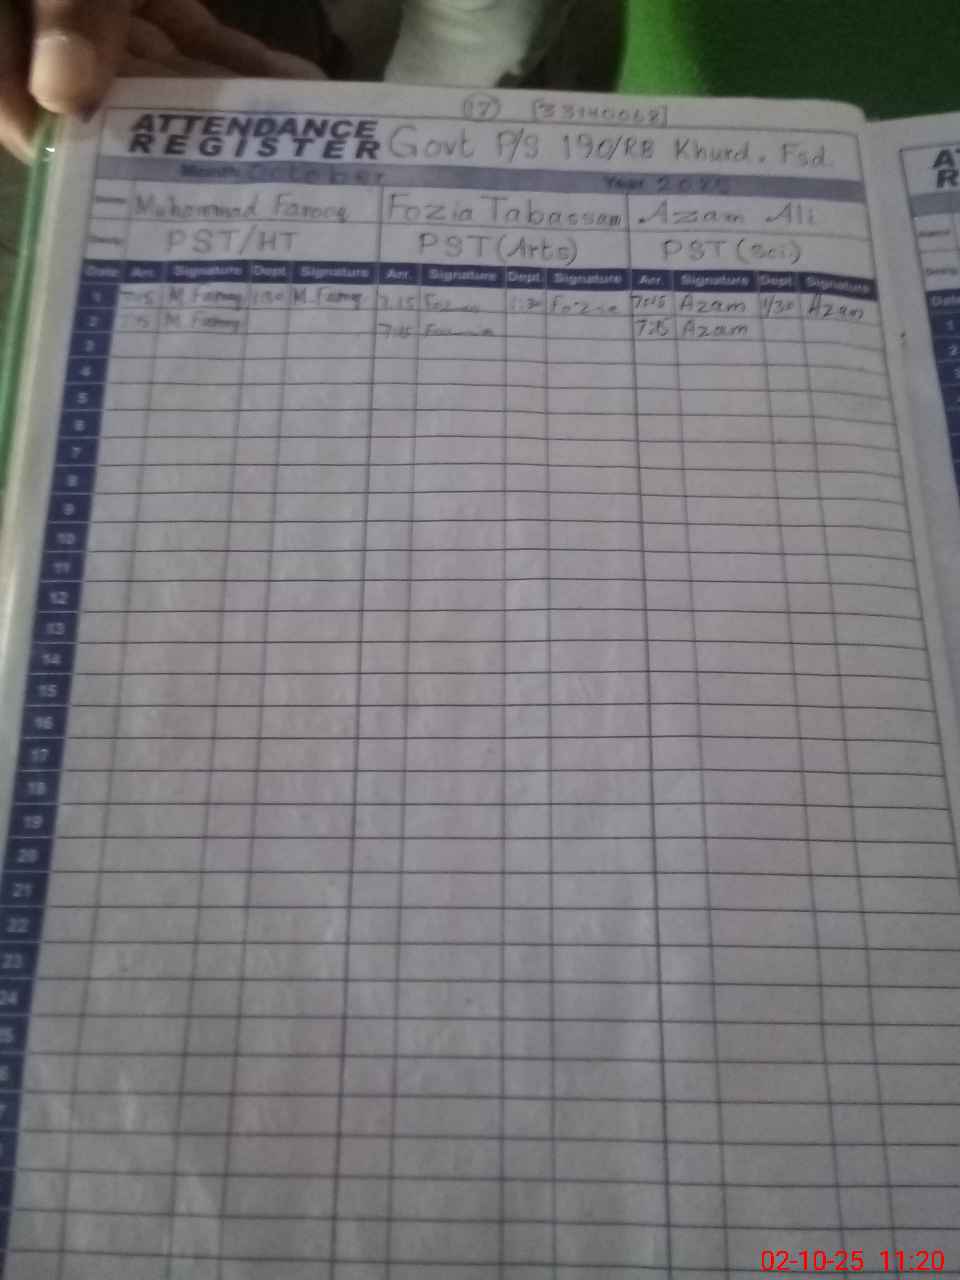 17 [33140068]
ATTENDANCE REGISTER Govt P/S 190/RB Khurd. Fsd.
Month October Year 2025
Name Muhammad Farooq Fozia Tabassam Azam Ali
PST/HT PST(Arts) PST(Sci)
Date Arr. Signature Dept. Signature Arr. Signature Dept. Signature Arr. Signature Dept. Signature
1 M. Farooq 1:30 M. Farooq 7.15 Fozia 1:30 Fozia 7:15 Azam 1/30 Azam
2 M. Farooq 7:15 7:15 Azam
3
4
5
6
7
8
9
10
11
12
13
14
15
16
17
18
19
20
21
22
23
24
02-10-25 11:20